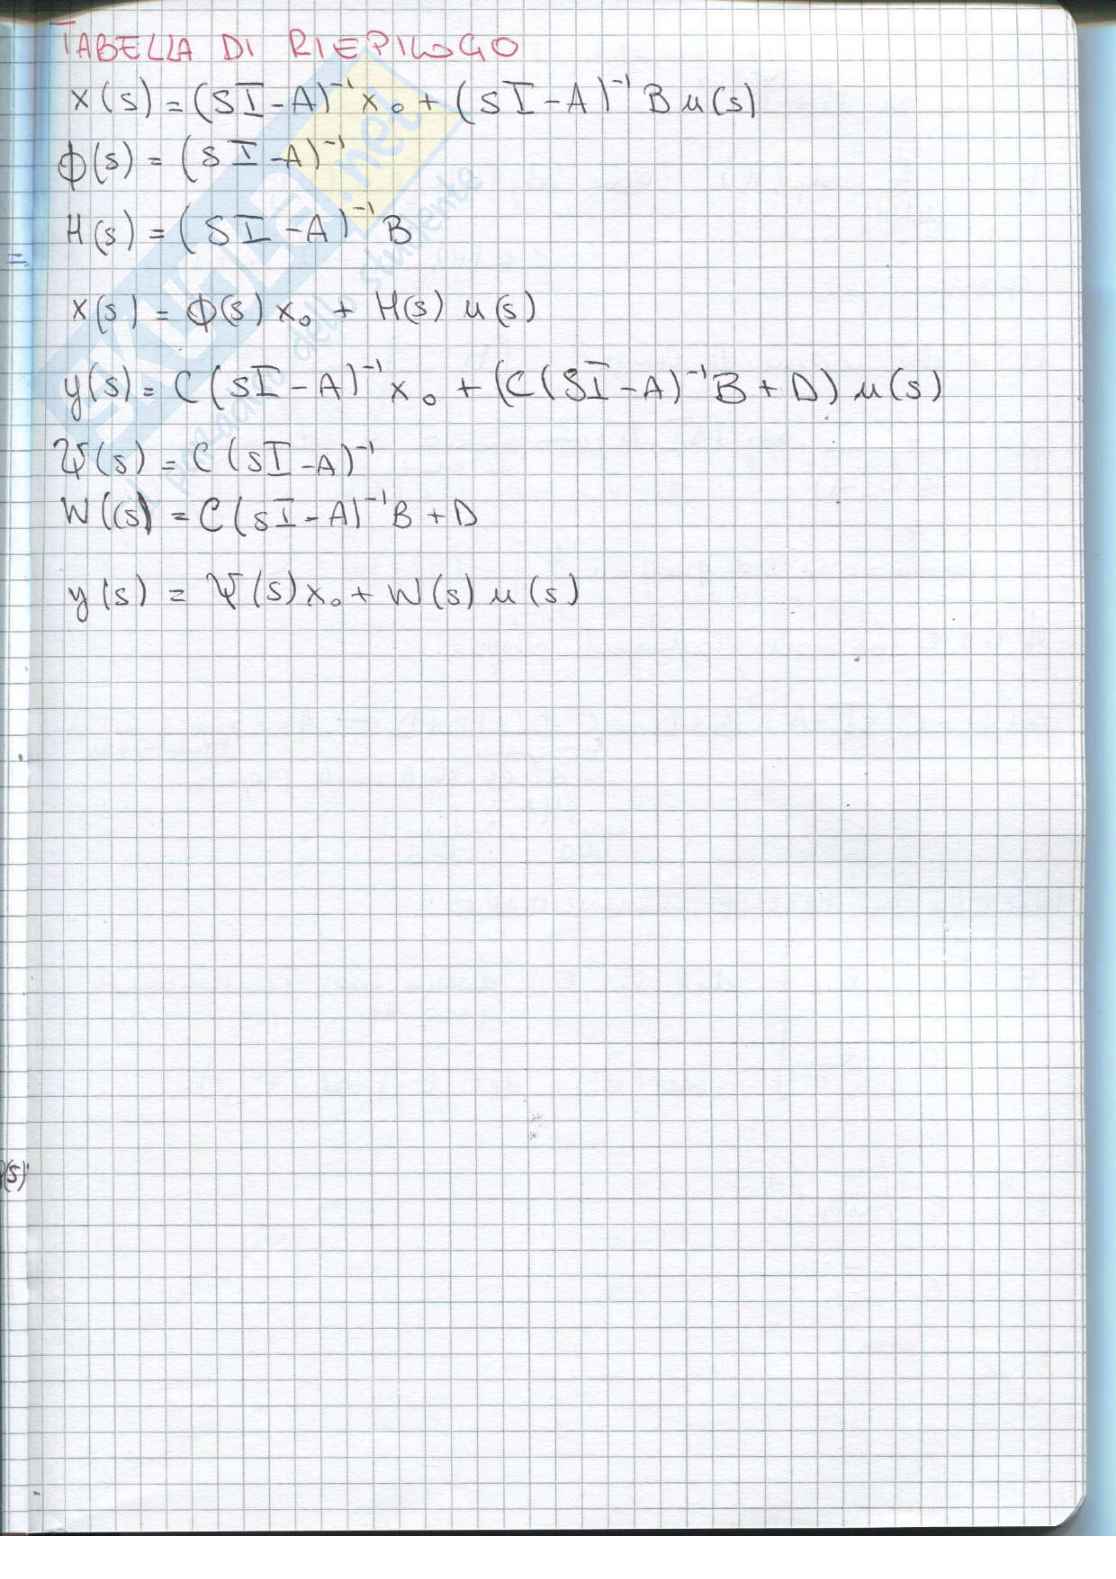 TABELLA DI RIEPILOGO
x(s) = (sI-A)⁻¹x₀ + (sI-A)⁻¹Bu(s)
ϕ(s) = (sI-A)⁻¹
H(s) = (sI-A)⁻¹B
x(s) = ϕ(s)x₀ + H(s)u(s)
y(s) = C(sI-A)⁻¹x₀ + (C(sI-A)⁻¹B+D)u(s)
Ψ(s) = C(sI-A)⁻¹
W((s) = C(sI-A)⁻¹B+D
y(s) = Ψ(s)x₀ + W(s)u(s)
(s)